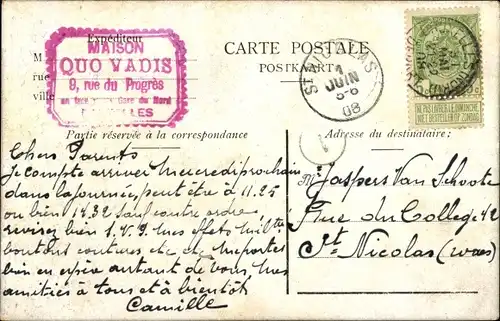 Expéditeur
M
rue
ville
MAISON
QUO VADIS
9, rue du Progrès
en face Gare du Nord
BRUXELLES
CARTE POSTALE
POSTKAART
ST NICOLAS
1
JUIN
5-6
08
BRUXELLES
NE PAS LIVRER LE DIMANCHE
NIET BESTELLEN OP ZONDAG
1
Partie réservée à la correspondance
Adresse du destinataire:
Chers Parents
Je compte arriver mercredi prochain
dans la journée, peut être à 11.25
ou bien 14.32 sauf contre ordre,
revisez bien S.V.P. mes effets milit.
boutons coutures etc etc mes portes
bien en espère autant de vous, mes
amitiés à tous et à bientôt
Camille
Mr Jaspers Van Schoote
Rue du College 42
St. Nicolas (waes)